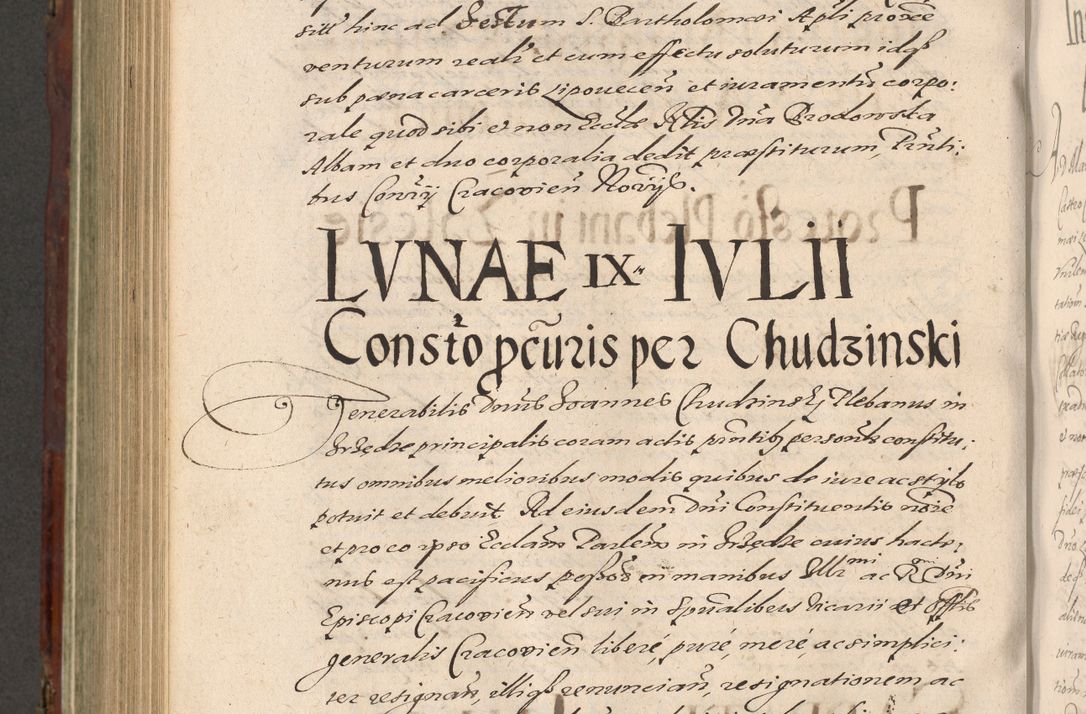 sill hinc ad Festum S. Bartholomæi Apli proxe
venturum reali et cum effectu soluturum idqȝ
sub pæna carceris Lipovecen et iuramentū corpo:
rale quod sibi et non Ecclæ Dna Brodowska
Albam et duo corporalia dedit præstiturum, Prnti:
bus Cracovien
LVNAE IX IVLII
Consto pcuris per Chudzinski
Venerabilis Dnus Joannes Chudzinsky Plebanus in
principalis coram actis prntibȝ personlr constitu:
tus omnibus melioribus modis quibus de iure ac stylo
potuit et debuit Ad eiusdem Dni Constituentis noie
et pro eo ipso Ecclam Parlem in cuius hacte,
nus est pacificus possor in manibus Illr mi ac R Dni
Episcopi Cracovien vel sui in Spualibus Vicarii et Offlis
generalis Cracovien liberé, puré, meré, ac simplici:
ter resignan, illiqȝ renuncian, resignationem, ac